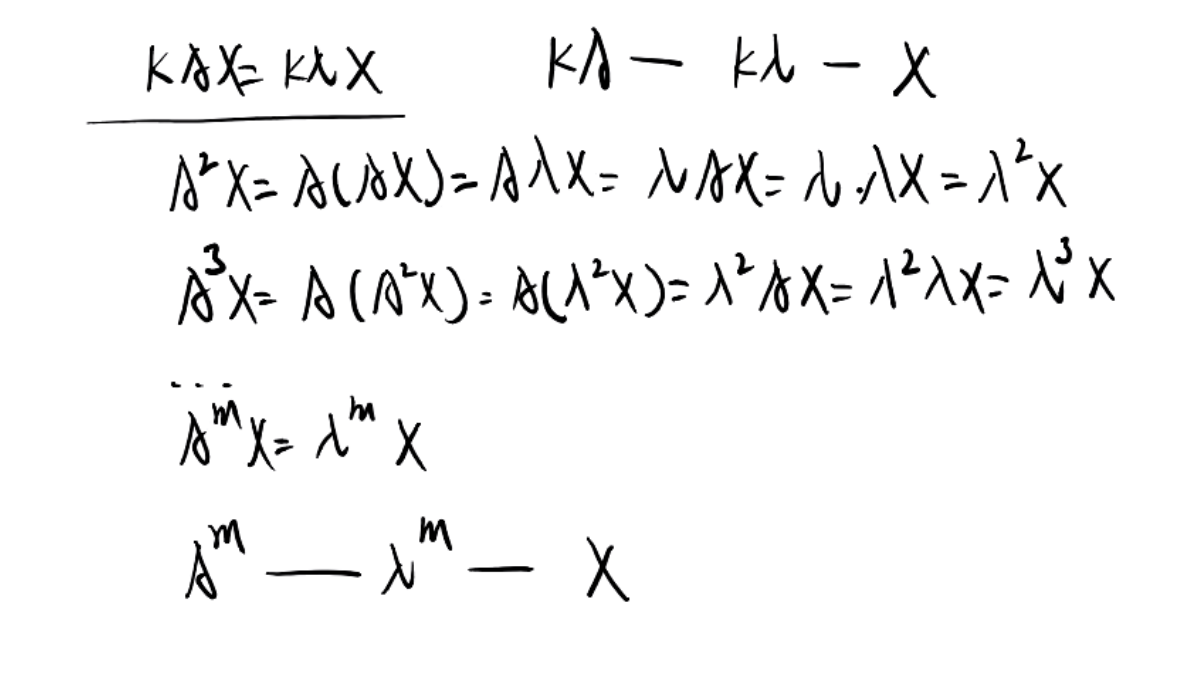 KAX=KλX KA — Kλ — X
A²X=A(AX)=AλX=λAX=λ·λX=λ²X
A³X=A(A²X)=A(λ²X)=λ²AX=λ²λX=λ³X
...
AᵐX=λᵐX
Aᵐ — λᵐ — X